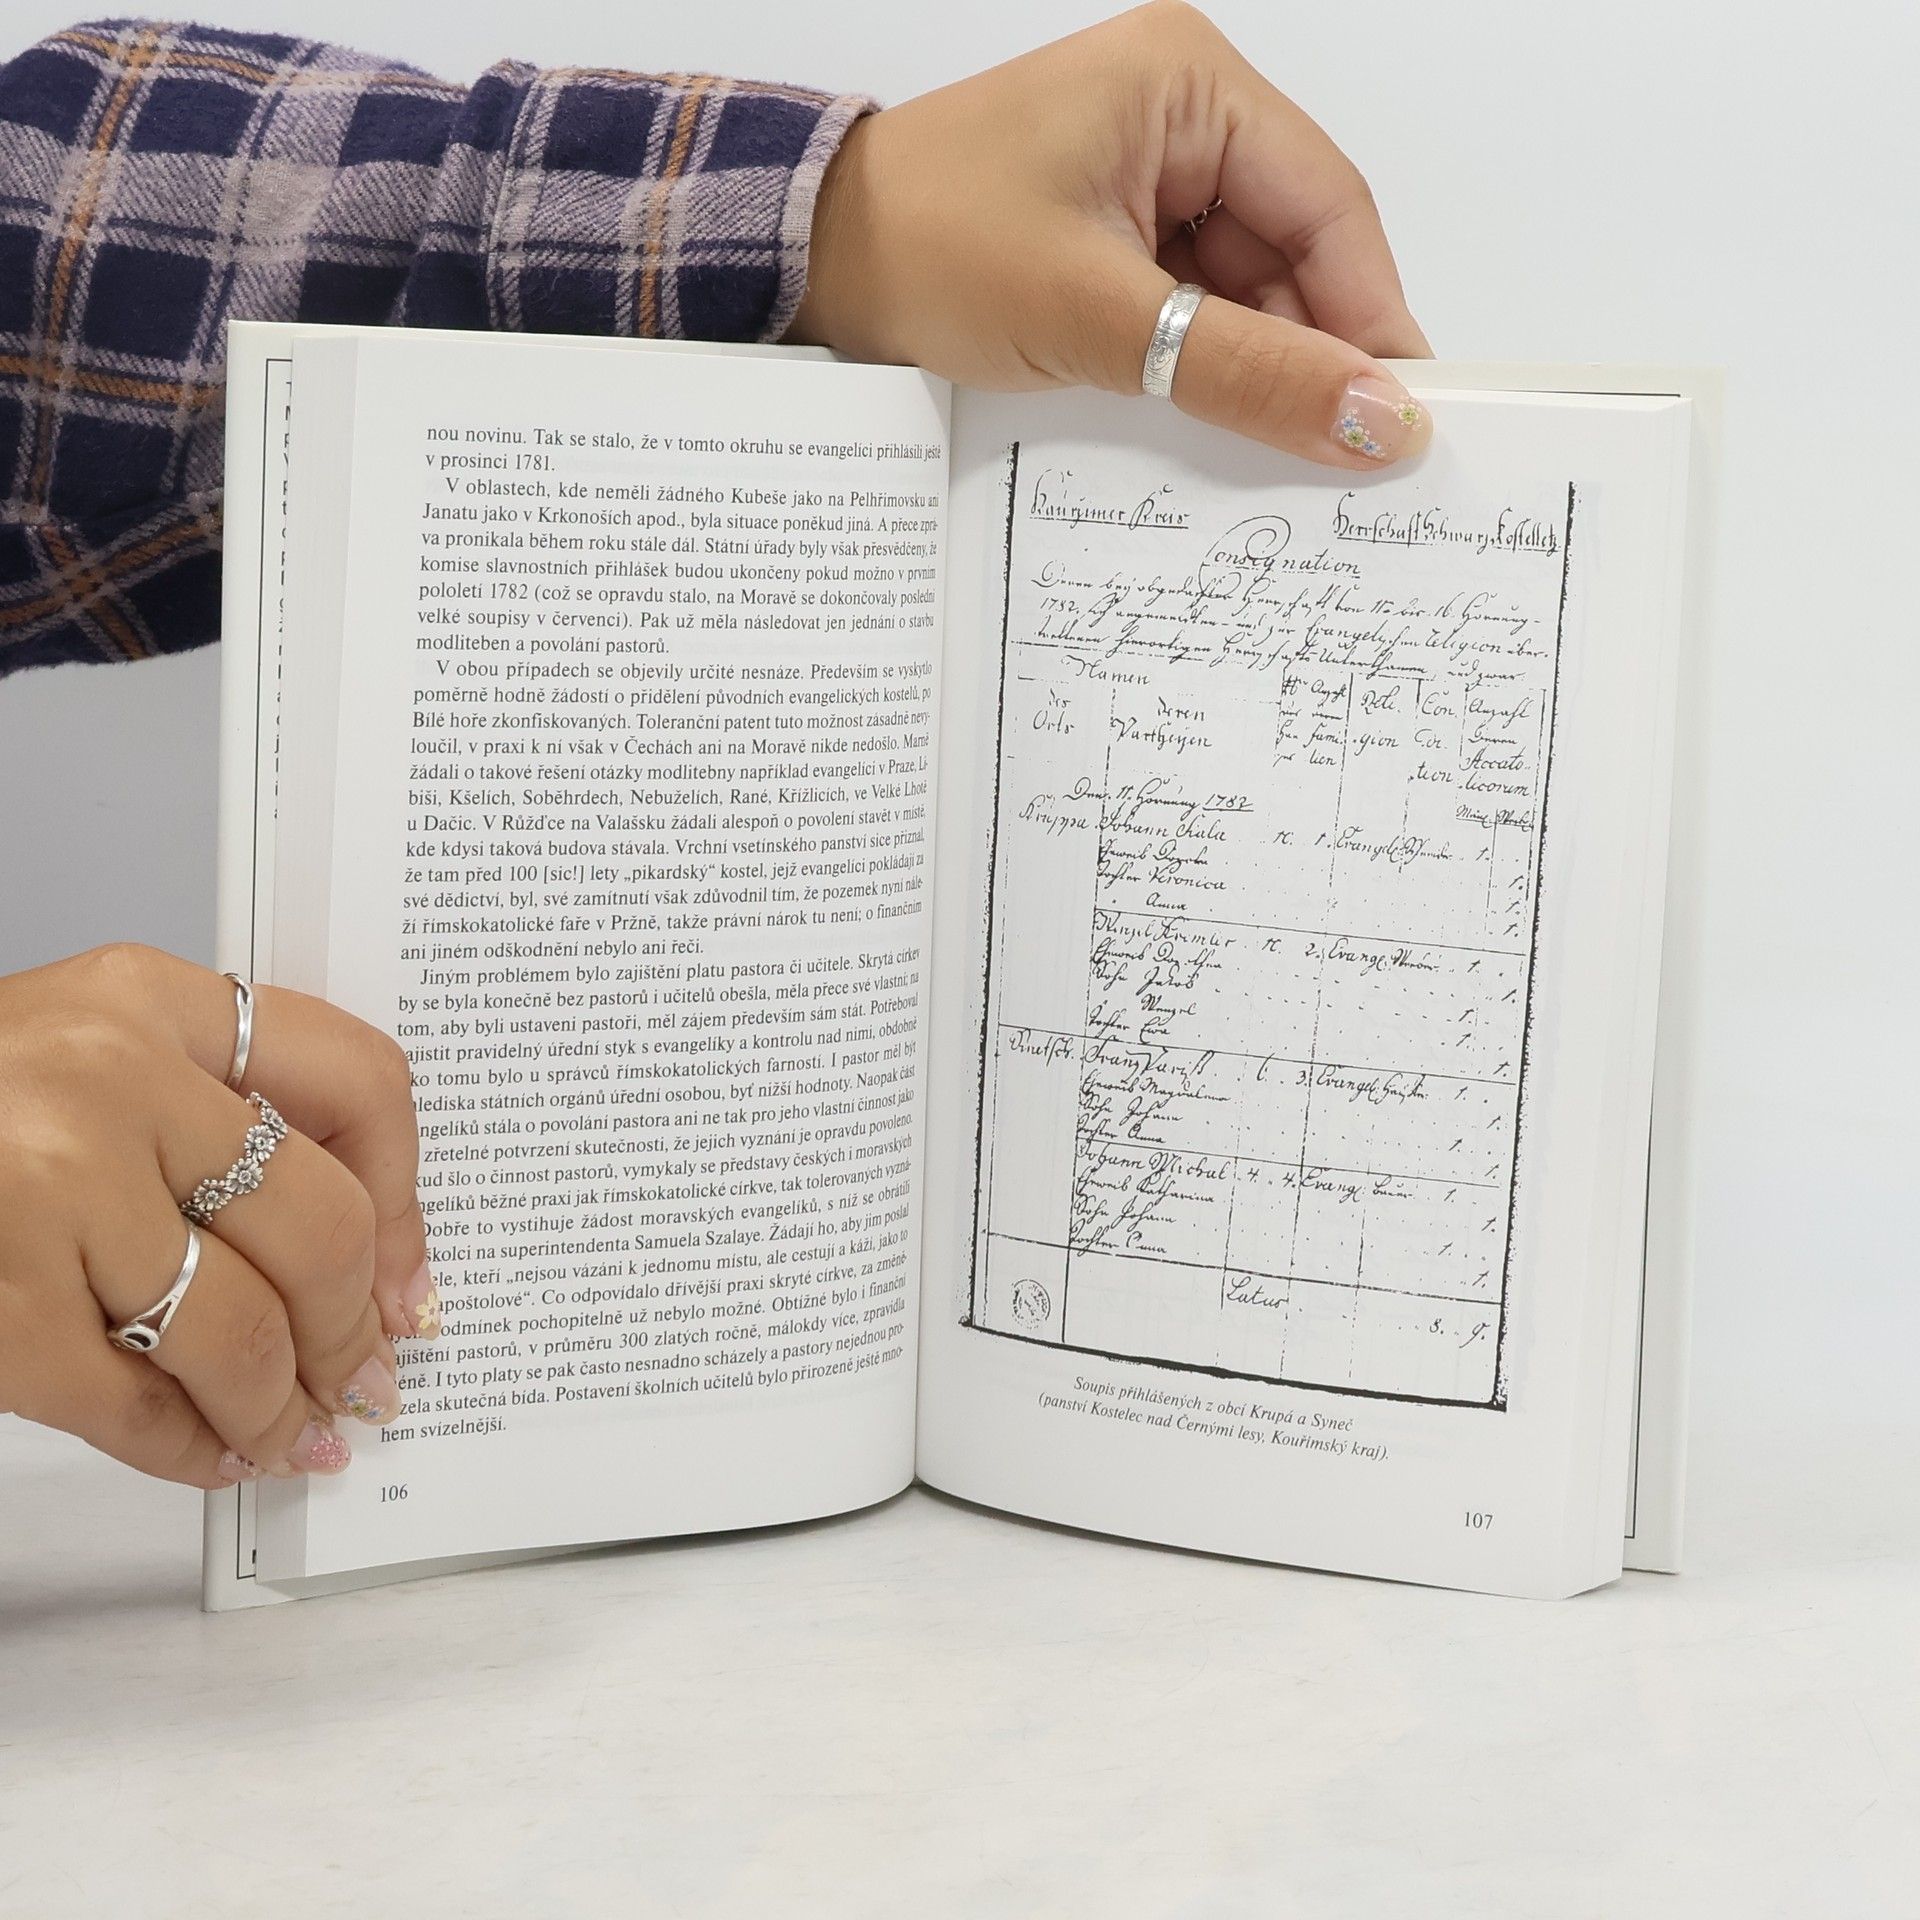 nou novinu. Tak se stalo, že v tomto okruhu se evangelíci přihlásili ještě
v prosinci 1781.
V oblastech, kde neměli žádného Kubeše jako na Pelhřimovsku ani
Janatu jako v Krkonoších apod., byla situace poněkud jiná. A přece zprá-
va pronikala během roku stále dál. Státní úřady byly však přesvědčeny, že
komise slavnostních přihlášek budou ukončeny pokud možno v prvním
pololetí 1782 (což se opravdu stalo, na Moravě se dokončovaly poslední
velké soupisy v červenci). Pak už měla následovat jen jednání o stavbu
modliteben a povolání pastorů.
V obou případech se objevily určité nesnáze. Především se vyskytlo
poměrně hodně žádostí o přidělení původních evangelických kostelů, po
Bílé hoře zkonfiskovaných. Toleranční patent tuto možnost zásadně nevy-
loučil, v praxi k ní však v Čechách ani na Moravě nikde nedošlo. Marně
žádali o takové řešení otázky modlitebny například evangelíci v Praze, Li-
biši, Kšelích, Soběhrdech, Nebuželích, Rané, Křížlicích, ve Velké Lhotě
u Dačic. V Růžďce na Valašsku žádali alespoň o povolení stavět v místě,
kde kdysi taková budova stávala. Vrchní vsetínského panství sice přiznal,
že tam před 100 [sic!] lety „pikardský“ kostel, jejž evangelíci pokládají za
své dědictví, byl, své zamítnutí však zdůvodnil tím, že pozemek nyní nále-
ží římskokatolické faře v Pržně, takže právní nárok tu není; o finančním
ani jiném odškodnění nebylo ani řeči.
Jiným problémem bylo zajištění platu pastora či učitele. Skrytá církev
by se byla konečně bez pastorů i učitelů obešla, měla přece své vlastní; na
tom, aby byli ustaveni pastoři, měl zájem především sám stát. Potřeboval
ajistit pravidelný úřední styk s evangelíky a kontrolu nad nimi, obdobně
ko tomu bylo u správců římskokatolických farností. I pastor měl být
lediska státních orgánů úřední osobou, byť nižší hodnoty. Naopak část
ngelíků stála o povolání pastora ani ne tak pro jeho vlastní činnost jako
zřetelné potvrzení skutečnosti, že jejich vyznání je opravdu povoleno.
kud šlo o činnost pastorů, vymykaly se představy českých i moravských
ngelíků běžné praxi jak římskokatolické církve, tak tolerovaných vyzná-
Dobře to vystihuje žádost moravských evangelíků, s níž se obrátili
školci na superintendenta Samuela Szalaye. Žádají ho, aby jim poslal
ele, kteří „nejsou vázáni k jednomu místu, ale cestují a káží, jako to
apoštolové“. Co odpovídalo dřívější praxi skryté církve, za změně-
odmínek pochopitelně už nebylo možné. Obtížné bylo i finanční
ajištění pastorů, v průměru 300 zlatých ročně, málokdy více, zpravidla
éně. I tyto platy se pak často nesnadno scházely a pastory nejednou pro-
zela skutečná bída. Postavení školních učitelů bylo přirozeně ještě mno-
hem svízelnější.
106
Kaurzimer Kreis Herrschaft Schwarz Kostelletz
Consignation
Deren bey obgedachter Herrschaft von 11. bis 16. Hornung
1782. sich angemeldten und zur Evangelischen Religion über-
trettenen hierortigen Herrschafts Unterthanen, und zwar
Namen
des Orts
deren Partheyen
Reli- gion
Con- di- tion
Anzahl deren Accato- licorum
Den 11. Hornung 1782
Kruppa Johann Fiala 1. Evangel. 1.
Eheweib Dorothea 1.
Tochter Veronica 1.
Anna 1.
Wenzel 2. Evang. 1.
Eheweib Dorothea 1.
Sohn Jakob 1.
Wenzel 1.
Tochter Eva 1.
Franz 3. Evangel. 1.
Eheweib Magdalena 1.
Sohn Johann 1.
Tochter Anna 1.
Johann Michal 4. 4. Evang. Bauer 1.
Eheweib Katharina 1.
Sohn Johann 1.
Tochter Anna 1.
Latus 8. 9.
Soupis přihlášených z obcí Krupá a Syneč
(panství Kostelec nad Černými lesy, Kouřimský kraj).
107